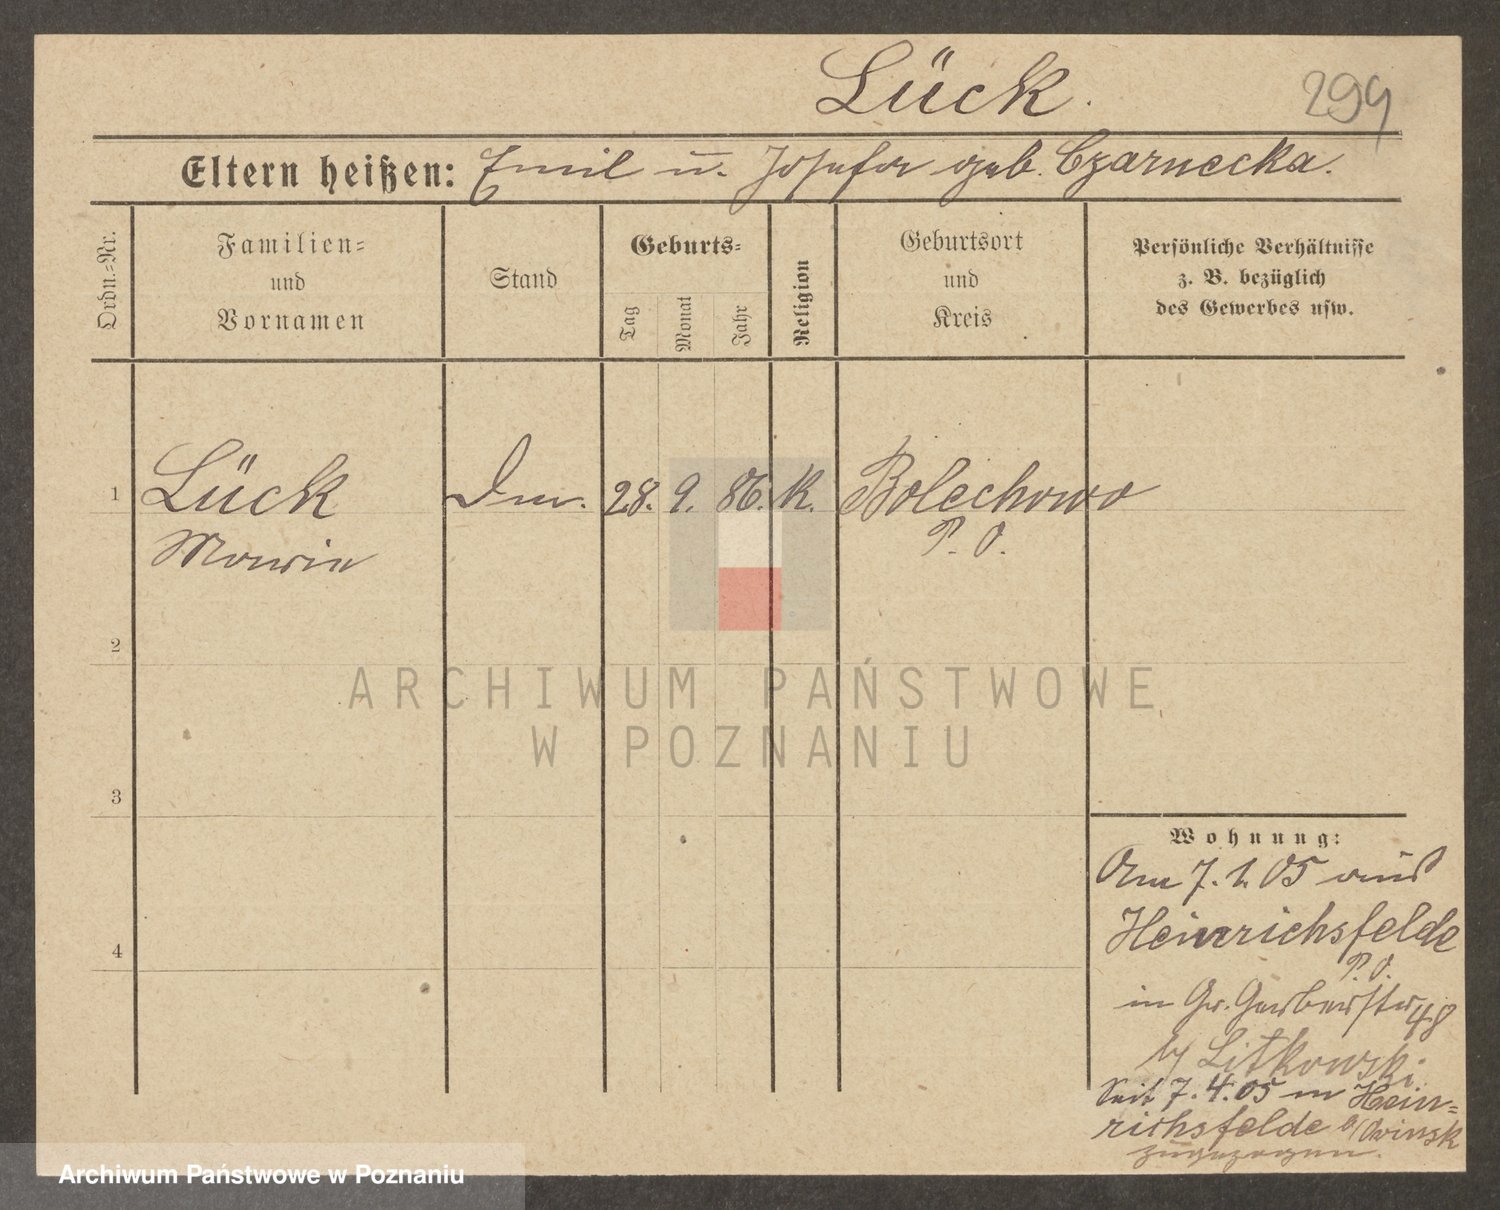 Lück.
299
Eltern heißen: Emil u. Josefa geb. Czarnecka.
Ordn.-Nr.
Familien-
und
Vornamen
Stand
Geburts-
Tag
Monat
Jahr
Religion
Geburtsort
und
Kreis
Persönliche Verhältnisse
z. B. bezüglich
des Gewerbes usw.
1 Lück 28. 9. 86. K. Bolechowo
Marie P. O.
2
3
4
ARCHIWUM PAŃSTWOWE
W POZNANIU
Wohnung:
Am 7. 1. 05 aus
Heinrichsfelde
P. O.
in Gr. Gerberstr 48
b/ Litkowski
Seit 7. 4. 05 in Hein-
richsfelde b/ Owinsk
zugezogen.
Archiwum Państwowe w Poznaniu